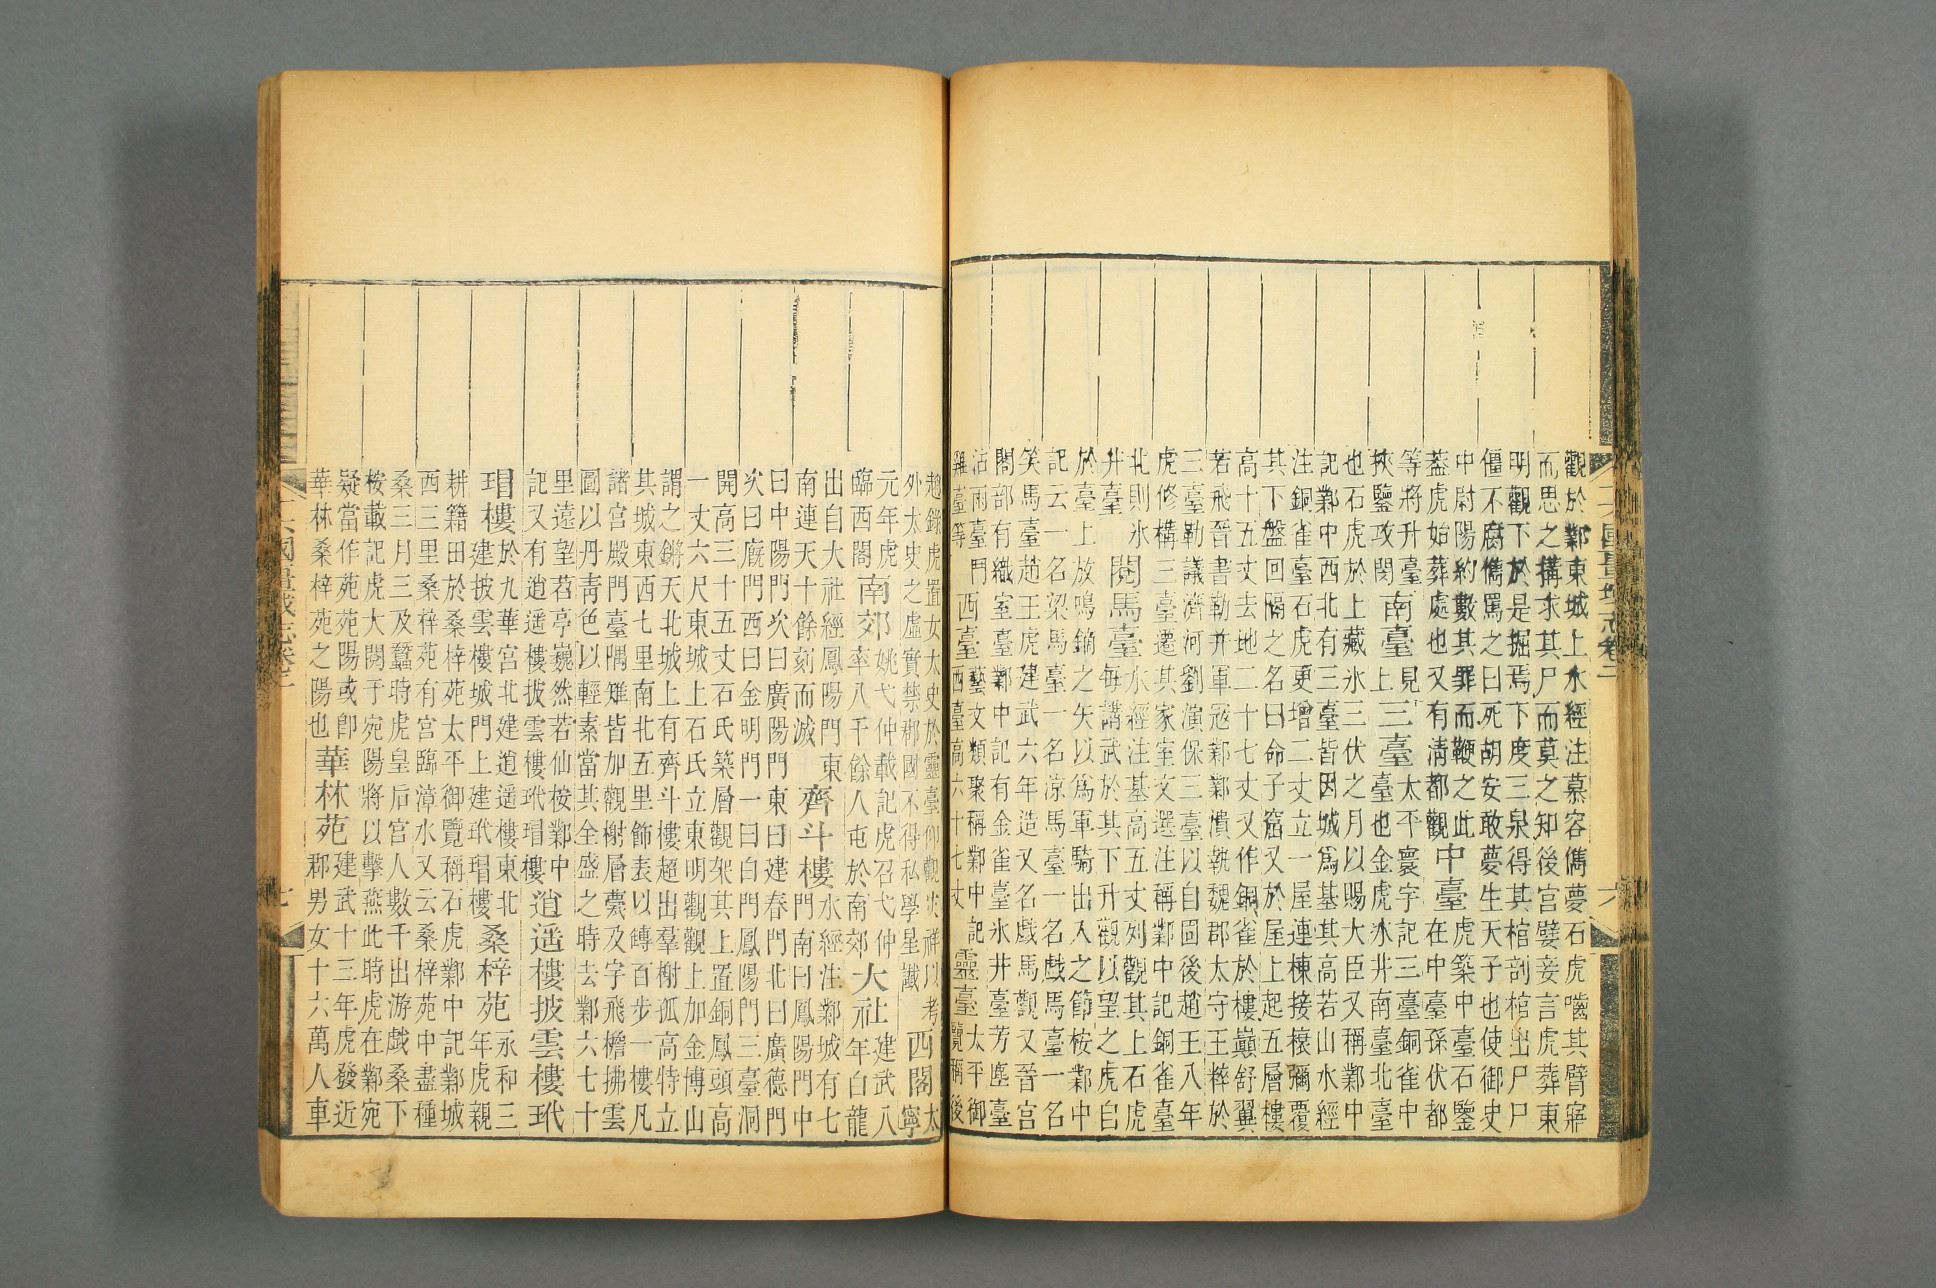 觀於鄴東城上水經注慕容儁夢石虎嚙其臂寤
而思之搆求其尸而莫之知後宮嬖妾言虎葬東
明觀下於是掘焉下度三泉得其棺剖棺出尸尸
僵不腐儁罵之曰死胡安敢夢生天子也使御史
中尉陽約數其罪而鞭之此葢虎始葬處也又有清都觀中臺虎築中臺石鑒在中臺孫伏都
等將升臺挾鑒攻閔南臺見上三臺太平寰宇記三臺銅雀中臺也金虎冰井南臺北臺
也石虎於上藏冰三伏之月以賜大臣又稱鄴中
記鄴中西北有三臺皆因城爲基其高若山水經
注銅雀臺石虎更增二丈立一屋連棟接榱彌覆
其下盤回隔之名曰命子窟又於屋上起五層樓
高十五丈去地二十七丈又作銅雀於樓巔舒翼
若飛晉書勒幷軍寇鄴鄴潰執魏郡太守王粹於
三臺勒議濟河劉演保三臺以自固後趙王八年
虎修構三臺遷其家室文選注稱鄴中記銅雀臺
北則氷井臺閱馬臺水經注基高五丈列觀其上石虎每講武於其下升觀以望之虎自
於臺上放鳴鏑之矢以爲軍騎出入之節桉鄴中
記云一名梁馬臺一名涼馬臺一名戲馬臺一名
笑馬臺趙王虎建武六年造又名戲馬觀又晉宮
閣部有織室臺鄴中記有金雀臺氷井臺芳塵臺
沽雨臺鬥雞臺等西臺藝文類聚稱鄴中記西臺高六十七丈靈臺太平御覽稱後
趙錄虎置女太史於靈臺仰觀災祥以考外太史之虛實禁郡國不得私學星讖西閣太寧
元年虎臨西閣南郊姚弋仲載記虎召弋仲率八千餘人屯於南郊大社建武八年白龍
出自大社經鳳陽門東南連天十餘刻而滅齊斗樓水經注鄴城有七門南曰鳳陽門中
曰中陽門次曰廣陽門東曰建春門北曰廣德門
次曰廏門西曰金明門一曰白門鳳陽門三臺洞
開高三十五丈石氏築層觀架其上置銅鳳頭高
一丈六尺東城上石氏立東明觀觀上加金博山
謂之鏘天北城上有齊斗樓超出羣榭孤高特立
其城東西七里南北五里飾表以磚百步一樓凡
諸宮殿門臺隅雉皆加觀榭層甍及宇飛檐拂雲
圖以丹靑色以輕素當其全盛之時去鄴六七十
里遠望苕亭巍然若仙桉鄴中記又有逍遥樓披雲樓玳瑁樓逍遥樓披雲樓玳
瑁樓於九華宮北建逍遥樓東北建披雲樓城門上建玳瑁樓桑梓苑永和三年虎親
耕籍田於桑梓苑太平御覽稱石虎鄴中記鄴城
西三里桑梓苑有宮臨漳水又云桑梓苑中盡種
桑三月三及蠶時虎皇后宮人數千出游戲桑下
桉載記虎大閱于宛陽將以擊燕此時虎在鄴宛
疑當作苑苑陽或卽華林桑梓苑之陽也華林苑建武十三年虎發近郡男女十六萬人車